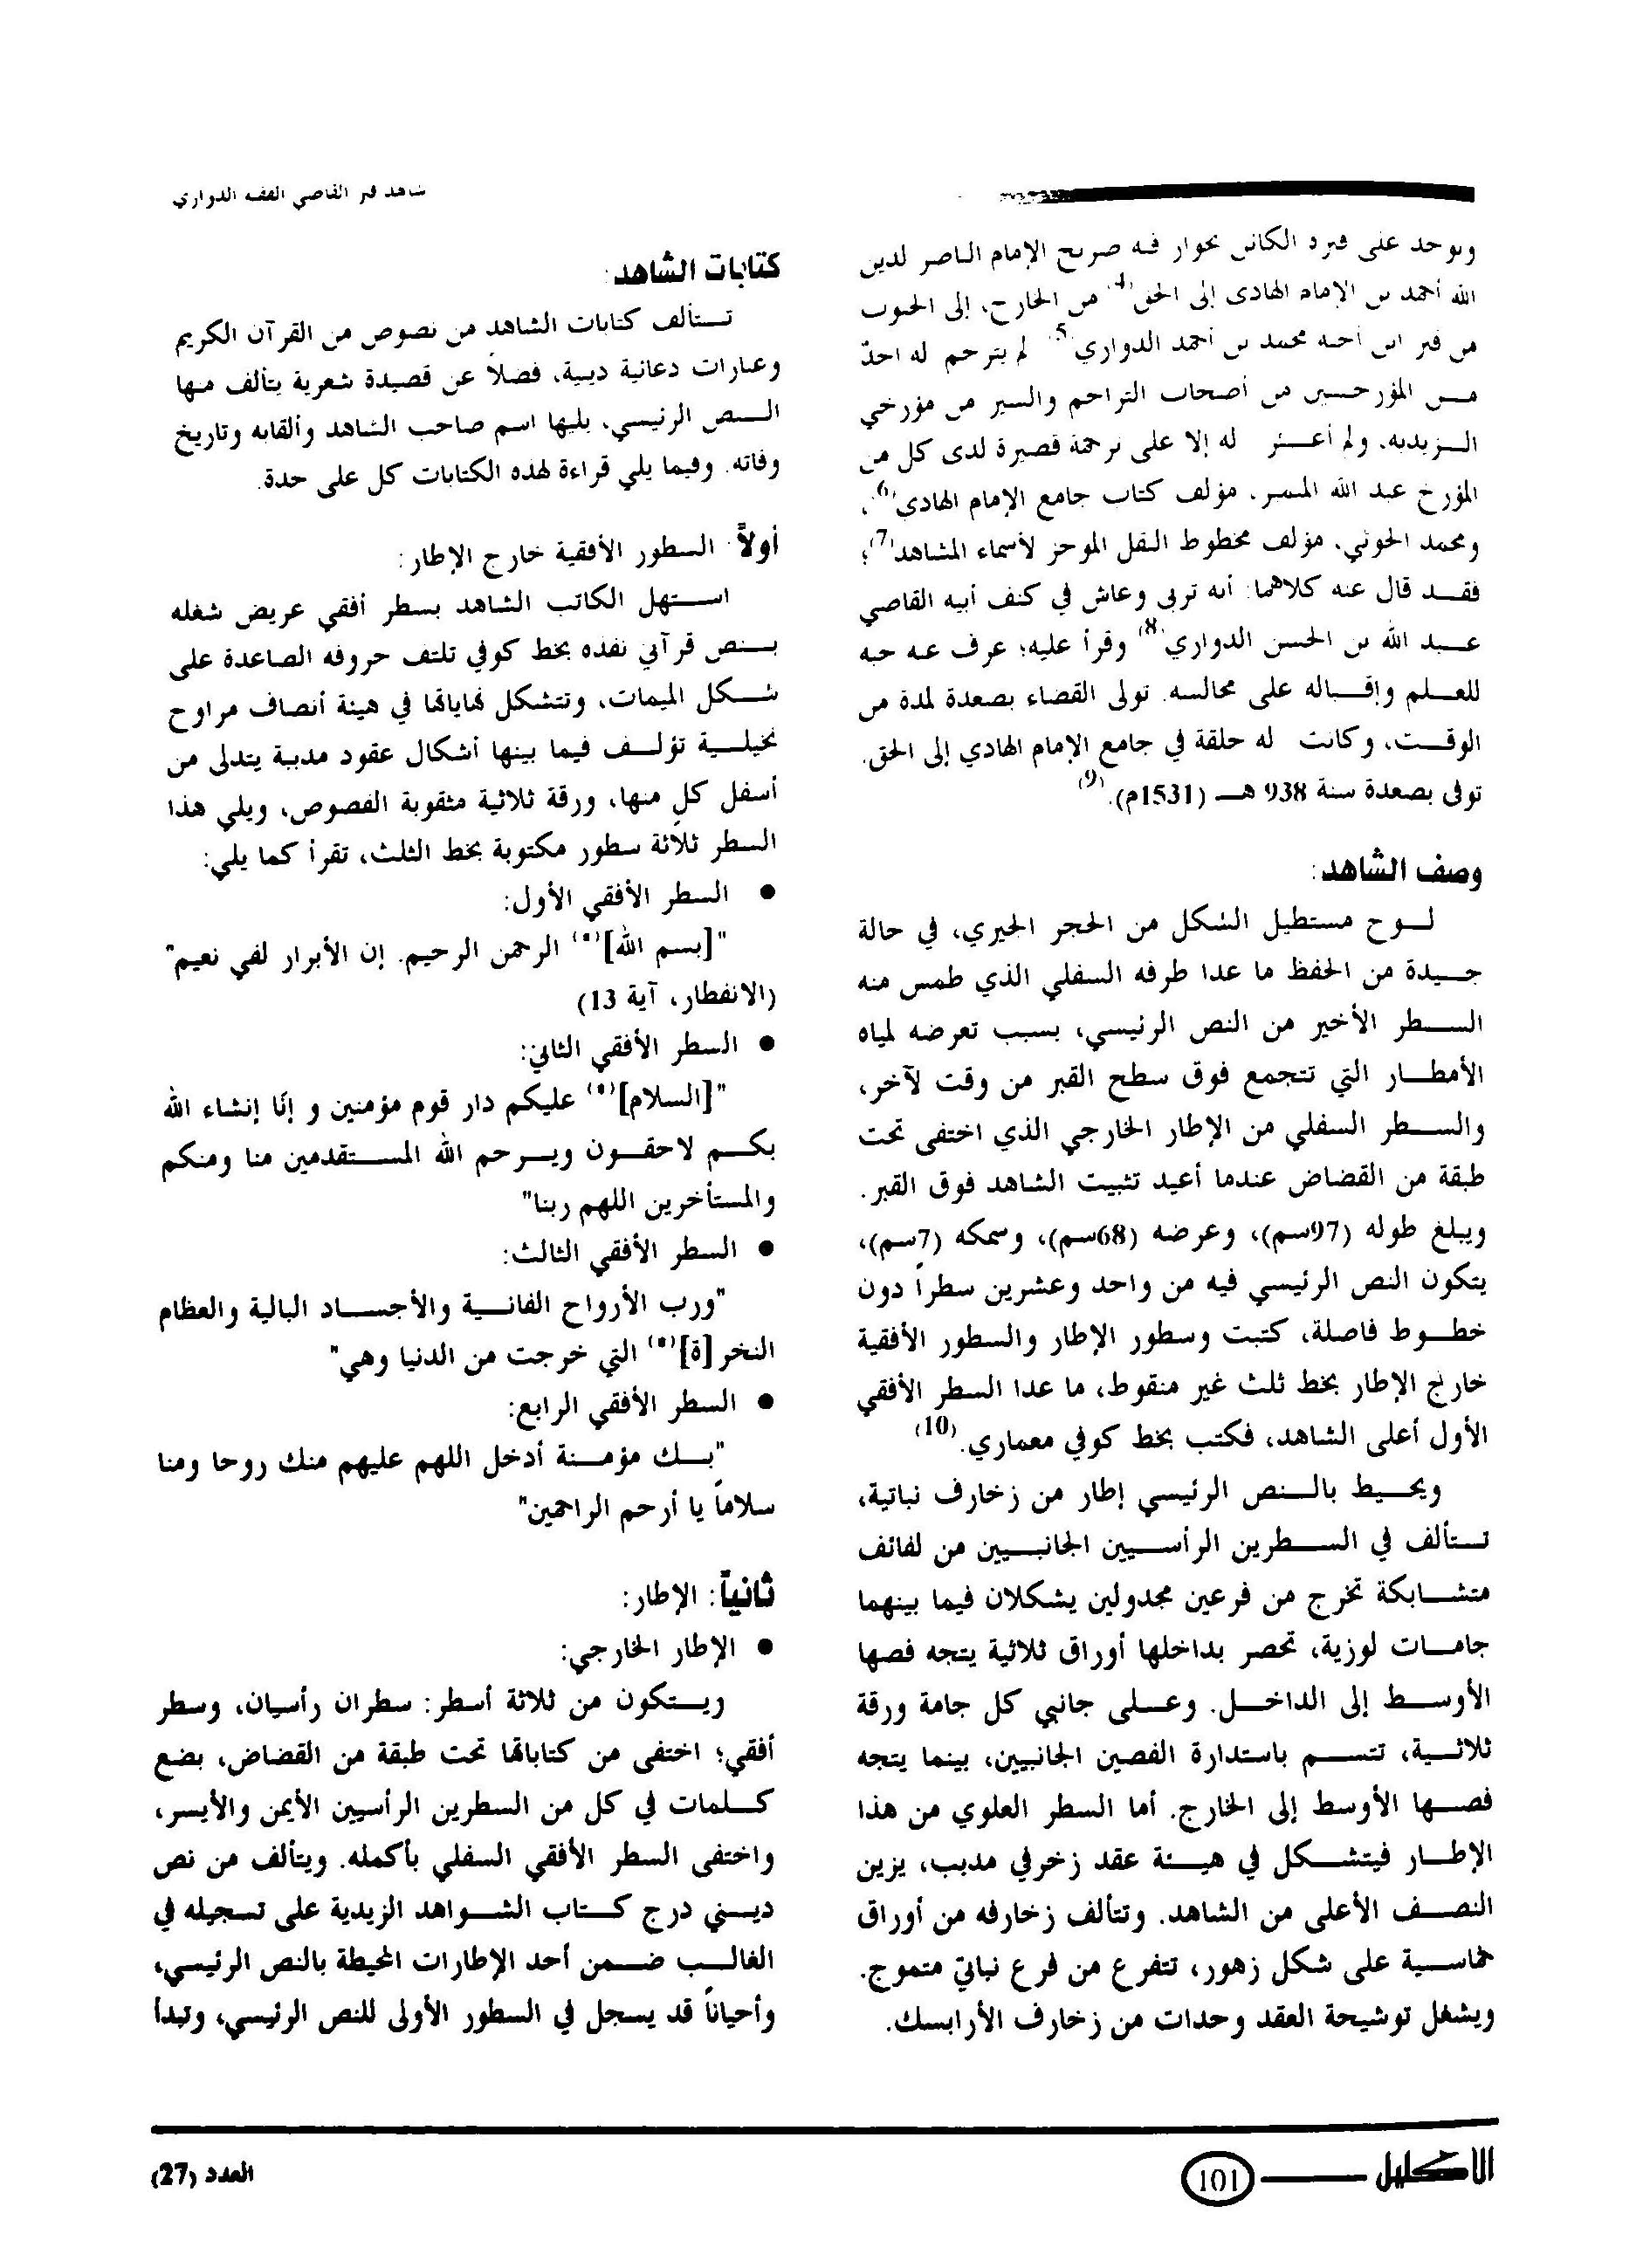 شاهد قبر القاضي الفقيه الدواري
ويوجد على قبره الكائن بجوار قبة ضريح الإمام الناصر لدين
الله أحمد بن الإمام الهادي إلى الحق(4) من الخارج، إلى الجنوب
من قبر ابن أخيه محمد بن أحمد الدواري(5) لم يترجم له احدٌ
مـن المؤرخـين من أصحاب التراجم والسير من مؤرخي
الـزيدية، ولم أعـثر له إلا على ترجمة قصيرة لدى كل من
المؤرخ عبد الله المنسر، مؤلف كتاب جامع الإمام الهادي(6)،
ومحمد الحوثي، مؤلف مخطوط النقل الموجز لأسماء المشاهد(7)؛
فقـد قال عنه كلاهما: أنه تربى وعاش في كنف أبيه القاضي
عـبد الله بن الحسن الدواري(8) وقرأ عليه؛ عرف عنه حبه
للعـلم وإقـباله على مجالسه. تولى القضاء بصعدة لمدة من
الوقـت، وكانت له حلقة في جامع الإمام الهادي إلى الحق.
توفى بصعدة سنة 938 هـ (1531م).(9)
وصف الشاهد:
لـوح مستطيل الشكل من الحجر الجيري، في حالة
جـيدة من الحفظ ما عدا طرفه السفلي الذي طمس منه
السـطر الأخير من النص الرئيسي، بسبب تعرضه لمياه
الأمطـار التي تتجمع فوق سطح القبر من وقت لآخر،
والسـطر السفلي من الإطار الخارجي الذي اختفى تحت
طبقة من القضاض عندما أعيد تثبيت الشاهد فوق القبر.
ويبلغ طوله (97سم)، وعرضه (68سم)، وسمكه (7سم)،
يتكون النص الرئيسي فيه من واحد وعشرين سطراً دون
خطـوط فاصلة، كتبت وسطور الإطار والسطور الأفقية
خارج الإطار بخط ثلث غير منقوط، ما عدا السطر الأفقي
الأول أعلى الشاهد، فكتب بخط كوفي معماري.(10)
ويحـيط بالـنص الرئيسي إطار من زخارف نباتية،
تـتألف في السـطرين الرأسـيين الجانبـيين من لفائف
متشـابكة تخرج من فرعين مجدولين يشكلان فيما بينهما
جامـات لوزية، تحصر بداخلها أوراق ثلاثية يتجه فصها
الأوسـط إلى الداخـل. وعـلى جانبي كل جامة ورقة
ثلاثـية، تتسـم باستدارة الفصين الجانبيين، بينما يتجه
فصـها الأوسط إلى الخارج. أما السطر العلوي من هذا
الإطـار فيتشـكل في هيـئة عقد زخرفي مدبب، يزين
النصـف الأعلى من الشاهد. وتتألف زخارفه من أوراق
خماسـية على شكل زهور، تتفرع من فرع نباتي متموج.
ويشغل توشيحة العقد وحدات من زخارف الأرابسك.
كتابات الشاهد:
تـتألف كتابات الشاهد من نصوص من القرآن الكريم
وعبارات دعائية دينية، فضلاً عن قصيدة شعرية يتألف منها
الـنص الرئيسي، يليها اسم صاحب الشاهد وألقابه وتاريخ
وفاته. وفيما يلي قراءة لهذه الكتابات كل على حدة.
أولاً: السطور الأفقية خارج الإطار:
اسـتهل الكاتب الشاهد بسطر أفقي عريض شغله
بـنص قرآني نفذه بخط كوفي تلتف حروفه الصاعدة على
شـكل الميمات، وتتشكل نهاياتها في هيئة أنصاف مراوح
نخيلـية تؤلـف فيما بينها أشكال عقود مدببة يتدلى من
أسفل كلٍ منها، ورقة ثلاثية مثقوبة الفصوص، ويلي هذا
السطر ثلاثة سطور مكتوبة بخط الثلث، تقرأ كما يلي:
● السطر الأفقي الأول:
"[بسم الله](*) الرحمن الرحيم. إن الأبرار لفي نعيم"
(الانفطار، آية 13)
● السطر الأفقي الثاني:
"[السلام](*) عليكم دار قوم مؤمنين و إنّا إنشاء الله
بكـم لاحقـون ويـرحم الله المسـتقدمين منا ومنكم
والمستأخرين اللهم ربنا"
● السطر الأفقي الثالث:
"ورب الأرواح الفانـية والأجسـاد البالية والعظام
النخر[ة](*) التي خرجت من الدنيا وهي"
● السطر الأفقي الرابع:
"بـك مؤمـنة أدخل اللهم عليهم منك روحا ومنا
سلاماً يا أرحم الراحمين"
ثانياً: الإطار:
● الإطار الخارجي:
ويـتكون من ثلاثة أسطر: سطران رأسيان، وسطر
أفقي؛ اختفى من كتاباتها تحت طبقة من القضاض، بضع
كـلمات في كل من السطرين الرأسيين الأيمن والأيسر،
واختفى السطر الأفقي السفلي بأكمله. ويتألف من نص
ديـني درج كـتاب الشـواهد الزيدية على تسجيله في
الغالـب ضـمن أحد الإطارات المحيطة بالنص الرئيسي،
وأحياناً قد يسجل في السطور الأولى للنص الرئيسي، وتبدأ
الاكليل 101
العدد (27)